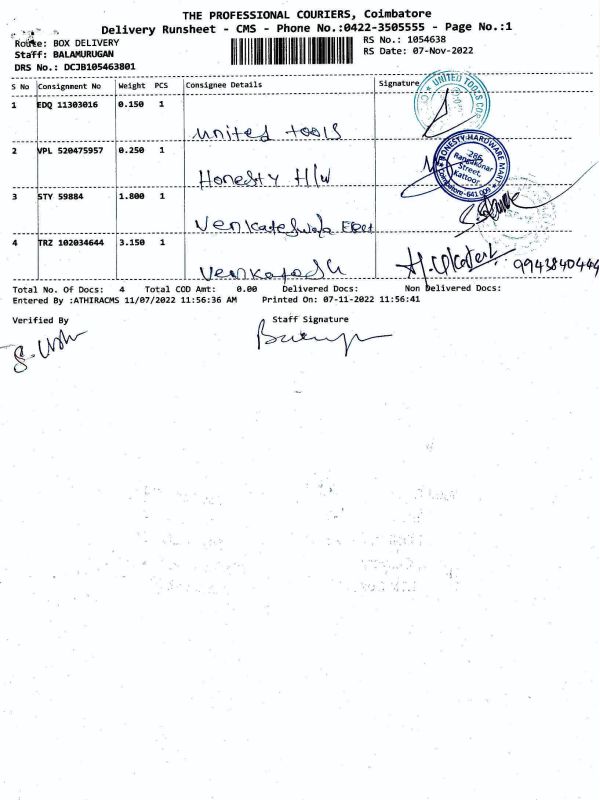 THE PROFESSIONAL COURIERS, Coimbatore
Delivery Runsheet - CMS - Phone No.:0422-3505555 - Page No.:1
Route: BOX DELIVERY
RS No.: 1054638
Staff: BALAMURUGAN
RS Date: 07-Nov-2022
DRS No.: DCJB105463801
S No Consignment No Weight PCS Consignee Details Signature
1 EDQ 11303016 0.150 1
UNITED TOOLS CO
united tools
2 VPL 520475957 0.250 1
HONESTY HARDWARE MART
286,
Rangakonar
Street,
Kattoor
Coimbatore-641 009
Honesty H/w
3 STY 59884 1.800 1
Venkateswara
4 TRZ 102034644 3.150 1
9943840444
Total No. Of Docs: 4 Total COD Amt: 0.00 Delivered Docs: Non Delivered Docs:
Entered By :ATHIRACMS 11/07/2022 11:56:36 AM Printed On: 07-11-2022 11:56:41
Verified By Staff Signature